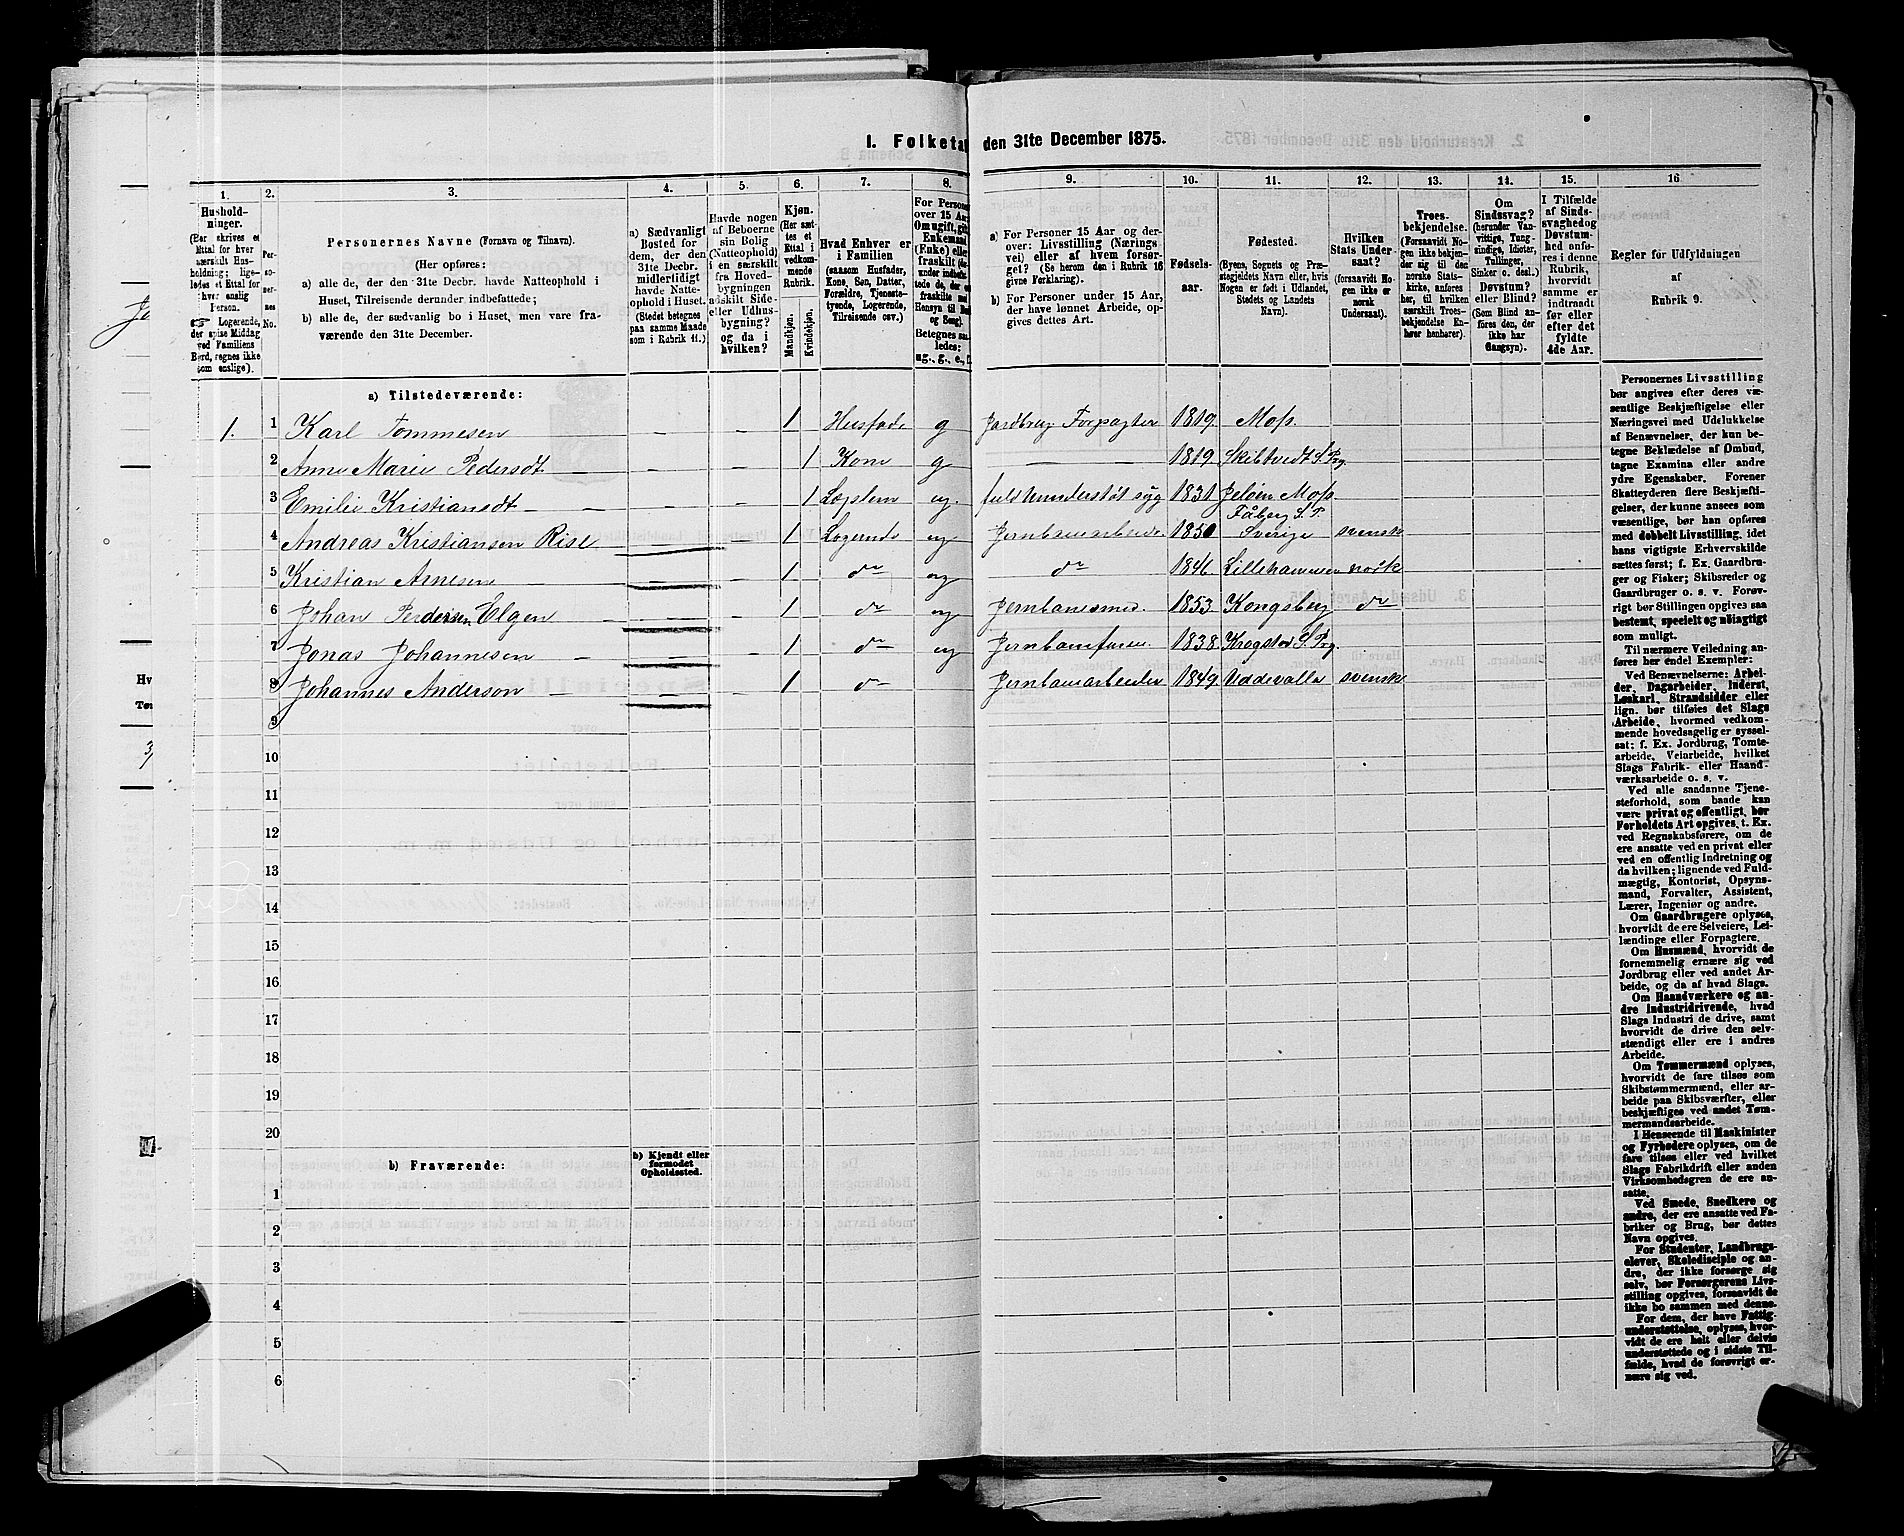 1. Folketal den 31te December 1875.
1. 2. 3. 4. 5. 6. 7. 8. 9. 10. 11. 12. 13. 14. 15. 16
Hushold-
ninger.
(Her skrives et
Ettal for hver
særskilt Hus-
holdning; lige-
ledes et Ettal for
hver enslig
Person.
☞ Logerende,
der spise Middag
ved Familiens
Bord, regnes ikke
som enslige).
Per-
so-
ner-
nes
No.
Personernes Navne (Fornavn og Tilnavn).
(Her opføres:
a) alle de, der den 31te Decbr. havde Natteophold i
Huset, Tilreisende derunder indbefattede;
b) alle de, der sædvanlig bo i Huset, men vare fra-
værende den 31te December.
a) Sædvanligt
Bosted for
dem, der den
31te Decbr.
midlertidigt
havde Natte-
ophold i Huset.
(Stedet betegnes
paa samme Maade
som i Rubrik 11.)
Havde nogen
af Beboerne
sin Bolig
(Natteophold)
i en særskilt
fra Hoved-
bygningen
adskilt Side-
eller Udhus-
bygning?
og da i
hvilken?
Kjøn.
(Her sæt-
tes et
Ettal i
vedkom-
mende
Rubrik.
Mandkjøn.
Kvindekjøn.
Hvad Enhver er
i Familien
(saasom Husfader,
Kone, Søn, Datter,
Forældre, Tjeneste-
tyende, Logerende,
Tilreisende osv.)
For Personer
over 15 Aar,
Om ugift, gift,
Enkemand
(Enke) eller
fraskilt
Betegnes saa-
ledes:
ug., g., e., f.
a) For Personer 15 Aar og der-
over: Livsstilling (Nærings
vei) eller af hvem forsør-
get? (Se herom den i Rubrik 16
givne Forklaring).
b) For Personer under 15 Aar,
der have lønnet Arbeide, op-
gives dettes Art.
Fødsels-
aar.
Fødested.
(Byens, Sognets og Præ-
stegjeldets Navn eller, hvis
Nogen er født i Udlandet,
Stedets og Landets
Navn).
Hvilken
Stats Under-
saat?
(forsaavidt No-
gen ikke er
norsk
Undersaat).
Troes-
bekjendelse.
(Forsaavidt No-
gen ikke bekjen-
der sig til den
norske Stats-
kirke, anføres
her, til hvilken
særskilt Troes-
bekjendelse En-
hver henhører).
Om
Sindssvag?
(herunder Van-
vittige, Tung-
sindige, Idioter,
Tullinger,
Sinker o. desl.)
Døvstum?
eller Blind?
(Som Blind an-
føres den, der
ikke har
Gangsyn).
I Tilfælde
af Sinds-
svaghed og
Døvstum-
hed anfø-
res i denne
Rubrik,
hvorvidt
samme er
indtraadt
før eller
efter det
fyldte
4de Aar.
Regler for Udfyldningen
af
Rubrik 9.
a) Tilstedeværende:
1. 1 Karl Tommesen — — 1 Husfade g Jordbrug Forpagter 1819. Moss.
2 Anne Marie Pedersdt — — 1 Kone g — — 1819 Skibtvedt S. Prg.
3 Emilie Kristiansdt — — — 1 ug. 1831. Jeløen Moss
4 Andreas Kristiansen Rise — — 1 Logerende ug Jernbanearbeide. 1850 Fåberg S. P. Sverige svensk
5 Kristian Arnesen — — — 1 do ug do 1846. Lillehammer norsk
6 Johan Pedersen Elgen — — — 1 do ug Jernbanesmed. 1853. Kongsberg do
7 Jonas Johannesen — — — 1 do ug 1838 Kragstad S. Prg.
8 Johannes Anderson — — — 1 do Jernbanearbeider 1849. Uddevalla svensk
9
10
11
12
13
14
15
16
17
18
19
20
b) Fraværende:
b) Kjendt eller
formodet
Opholdssted.
1
2
3
4
5
6
Personernes Livsstilling
bør angives efter deres væ-
sentlige Beskjæftigelse eller
Næringsvei med Udelukkelse
af Benævnelser, der kun be-
tegne Beklædelse af Ombud,
tagne Examina eller andre
ydre Egenskaber. Forener
Skatteyderen flere Beskjæfti-
gelser, der kunne ansees som
væsentlige, bør han opføres
med dobbelt Livsstilling, idet
hans vigtigste Erhvervskilde
sættes først; f. Ex. Gaardbru-
ger og Fisker; Skibsreder og
Gaardbruger o. s. v. Forøv-
rigt bør Stillingen opgives saa
bestemt, specielt og nøiagtigt
som muligt.
Til nærmere Veiledning an-
føres her endel Exempler:
Ved Benævnelserne: Arbei-
der, Dagarbeider, Inderst,
Løskarl, Strandsidder eller
lign. bør tilføies det Slags
Arbeide, hvormed vedkom-
mende hovedsagelig er syssel-
sat: f. Ex. Jordbrug, Tomte-
arbeide, Veiarbeide, hvilket
Slags Fabrik- eller Haand-
værksarbeide o. s. v.
Ved alle saadanne Tjene-
steforhold, som baade kan
være privat og offentligt, bør
Forholdets Art opgives, t. Ex.
ved Regnskabsførere, om de
ere ansatte ved en privat eller
ved en offentlig Indretning og
da hvilken; lignende ved Fuld-
mægtig, Kontorist, Opsyns-
mand, Forvalter, Assistent,
Lærer, Ingeniør og andre.
Om Gaardbrugere oplyses,
hvorvidt de ere Selveiere, Lei-
lændinge eller Forpagtere.
Om Husmænd, hvorvidt de
fornemmelig ernære sig ved
Jordbrug eller ved andet Ar-
beide, og da af hvad Slags.
Om Haandværkere og an-
dre Industridrivende, hvad
Slags Industri de drive, samt
hvorvidt de drive den selv-
stændigt eller ere i andres
Arbeide.
Om Tømmermænd oplyses,
hvorvidt de fare tilsøs som
Skibstømmermænd, eller ar-
beide paa Skibsværfter, eller
beskjæftiges ved andet Tøm-
mermandsarbeide.
I Henseende til Maskinister
og Fyrbødere oplyses, om de
fare tilsøs eller ved hvilket
Slags Fabrikdrift eller anden
Virksomhedsgren de ere an-
satte.
Ved Smede, Snedkere og
andre, der ere ansatte ved Fa-
briker og Brug, bør dettes
Navn opgives.
For Studenter, Landbrugs-
elever, Skoledisciple og an-
dre, der ikke forsørge sig
selv, bør Forsørgerens Livs-
stilling opgives, forsaavidt de
ikke bo sammen med denne.
For dem, der have Fattig-
understøttelse, oplyses, hvor-
vidt de ere helt eller delvis
understøttede og i sidste Til-
fælde, hvad de forøvrigt er-
nære sig ved.